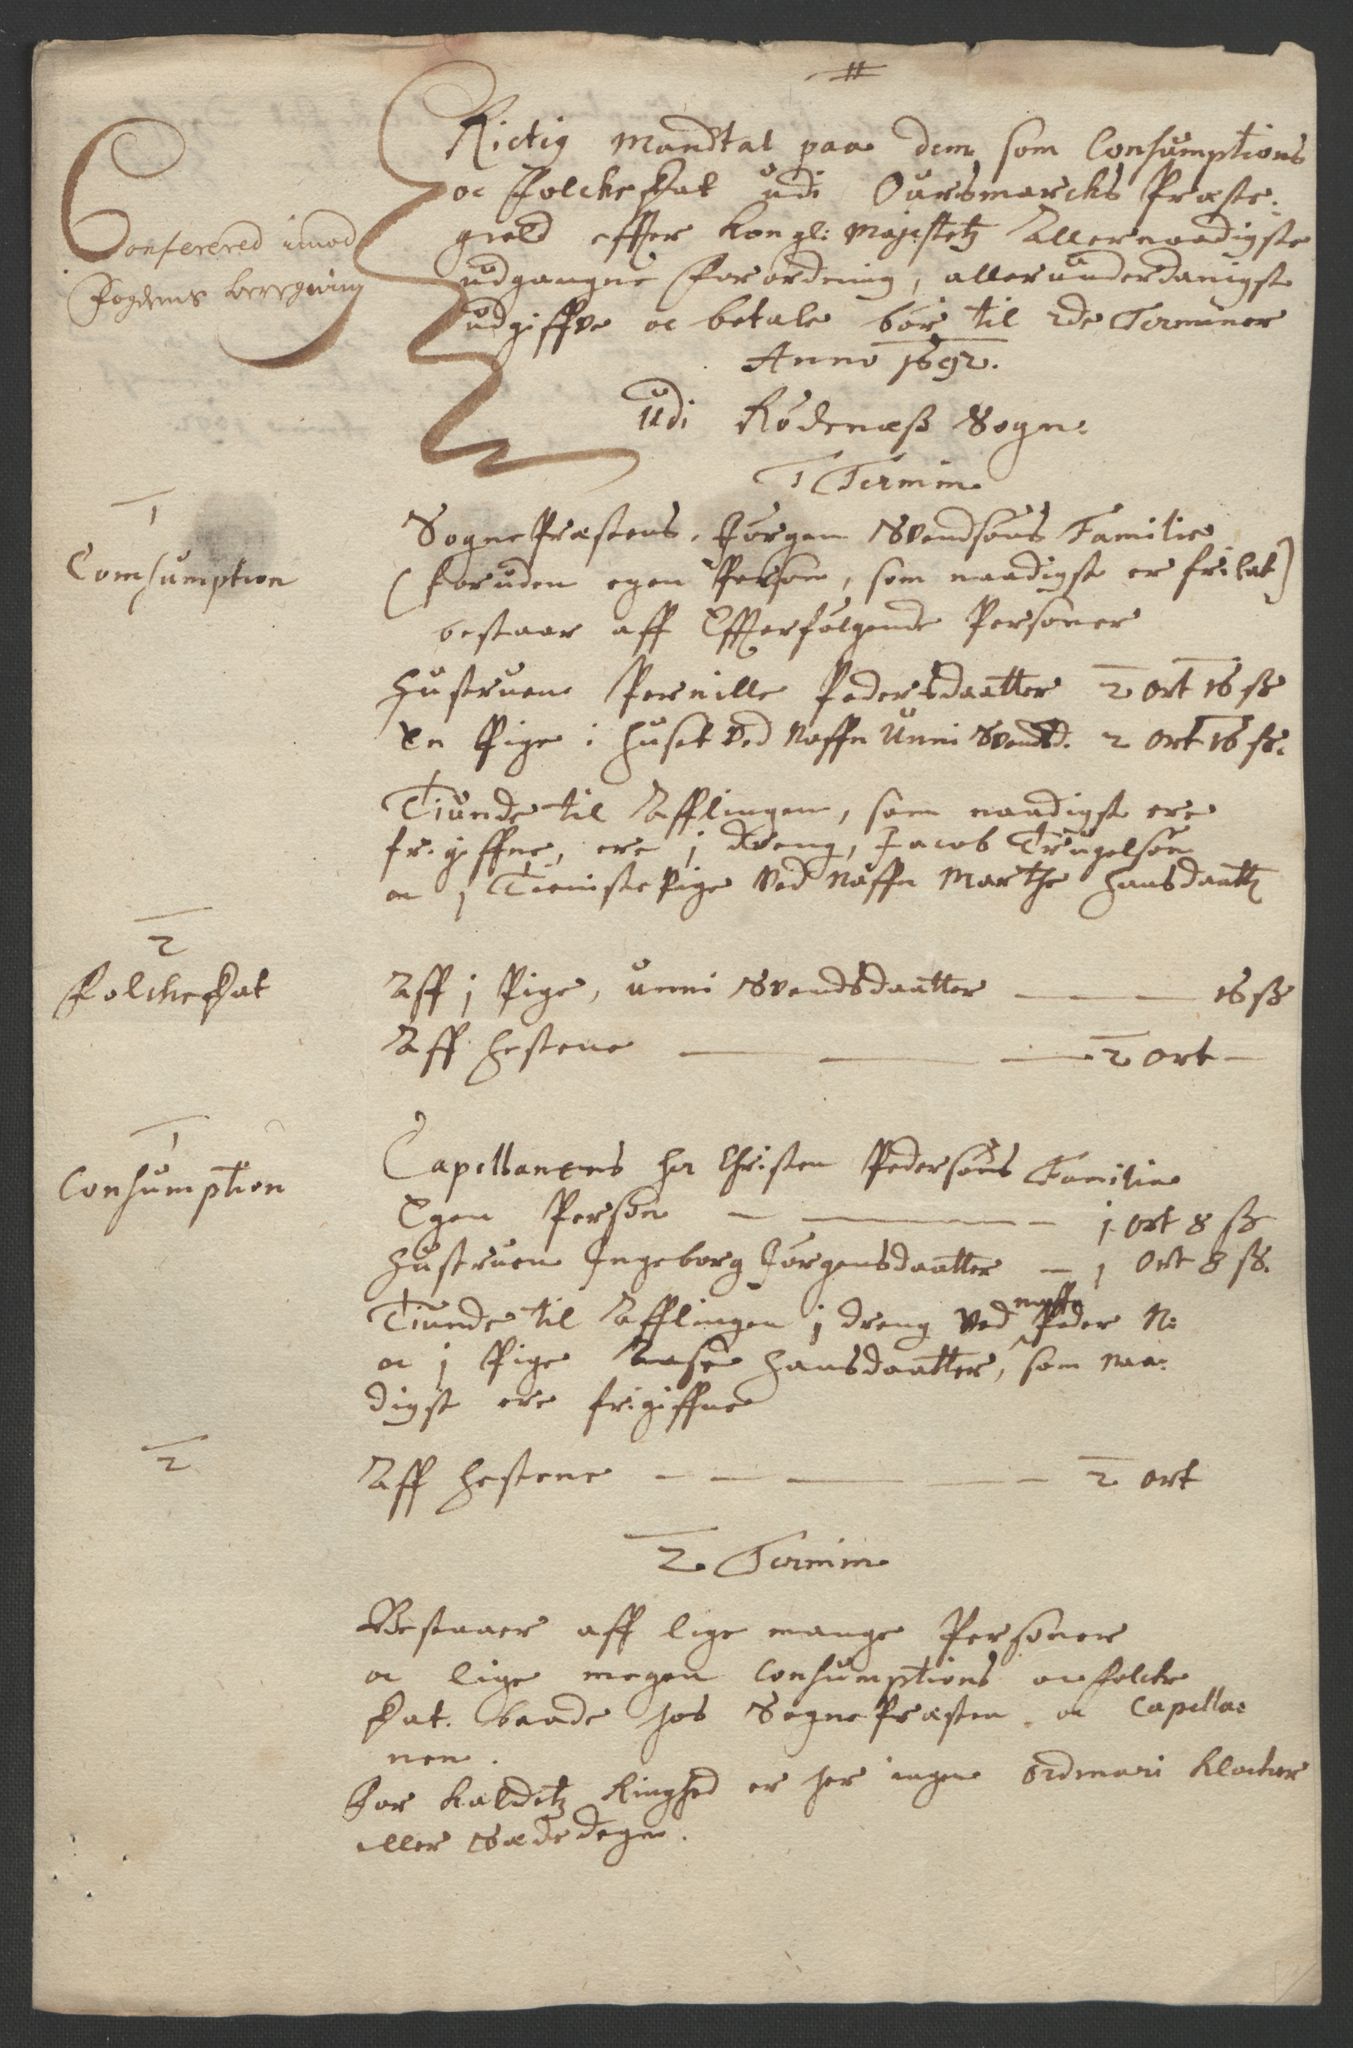 Rictig Mandtal paa dem som Consumptions
oc Folckeskat udi Oursmarcks Præste-
gield effter Kongl: Majestetz Allernaadigste
udgangne Forordening, allerunderdanigst
udgiffve oc betale bør til 2de Terminer
Anno 1692.
Udi Rødenæss Sogn:
Conferered imod
Fogdens beregning
1 Termin
1
Consumption
SognePræstens Jørgen Svendsøns Familie
(foruden egen Person, som naadigst er frilat)
bestaar aff Effterfølgende Personer
Hustruen Pernille Pedersdaatter 2 ort 16 ss
En Pige i Huset ved Naffn Unni Svendsd. 2 ort 16 ss.
Tiunde til Afflingen, som naadigst ere
frigiffne, ere j dreng, Jacob Trugelsøn
oc j TienistePige ved Naffn Marthe Hansdaatt
2
Folckeskat
Aff j Pige, Unni Svendsdaatter 16 ss
Aff Hestene 2 ort
1
Consumption
Capellanens Hr Christen Pedersøns Familie
Egen Person j ort 8 ss
Hustruen Ingeborg Jørgensdaatter 1 ort 8 ss.
Tiunde til Afflingen j dreng ved naffn Peder N:
oc j Pige Aase Hansdaatter, som naa-
digst ere frigiffne
2
Aff Hestene 2 ort
2 Termin
Bestaaer aff lige mange Personer
oc lige megen Consumptions oc folcke
skat. baade hos SognePræsten oc Capella-
nen.
For Kaldetz Ringhed er her ingen ordinari Klocker
eller Sædedegn.